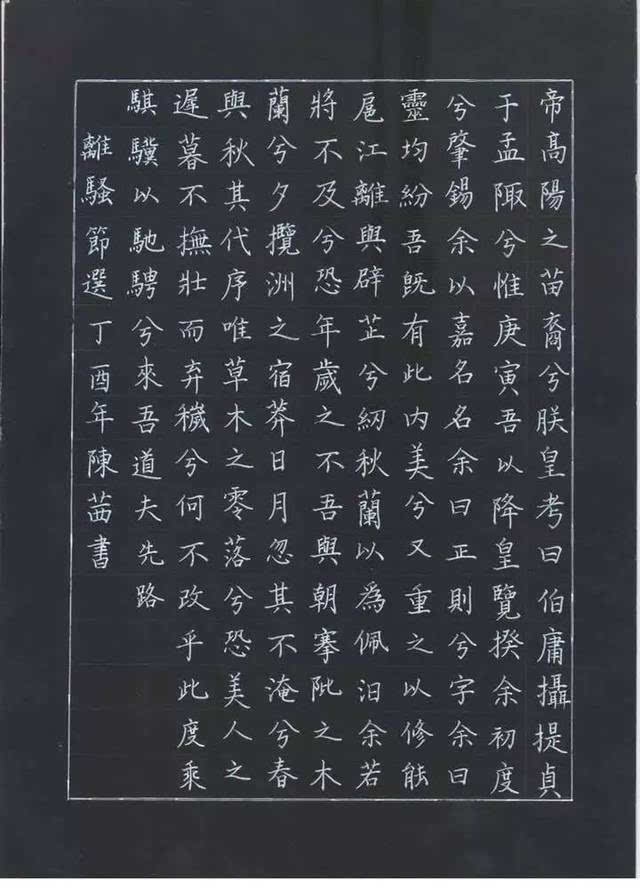 帝高陽之苗裔兮朕皇考曰伯庸攝提貞
于孟陬兮惟庚寅吾以降皇覽揆余初度
兮肇錫余以嘉名名余曰正則兮字余曰
靈均紛吾既有此内美兮又重之以修能
扈江離與辟芷兮紉秋蘭以為佩汩余若
將不及兮恐年歲之不吾與朝搴阰之木
蘭兮夕攬洲之宿莽日月忽其不淹兮春
與秋其代序唯草木之零落兮恐美人之
遲暮不撫壯而弃穢兮何不改乎此度乘
騏驥以馳騁兮來吾道夫先路
離騷節選丁酉年陳茜書